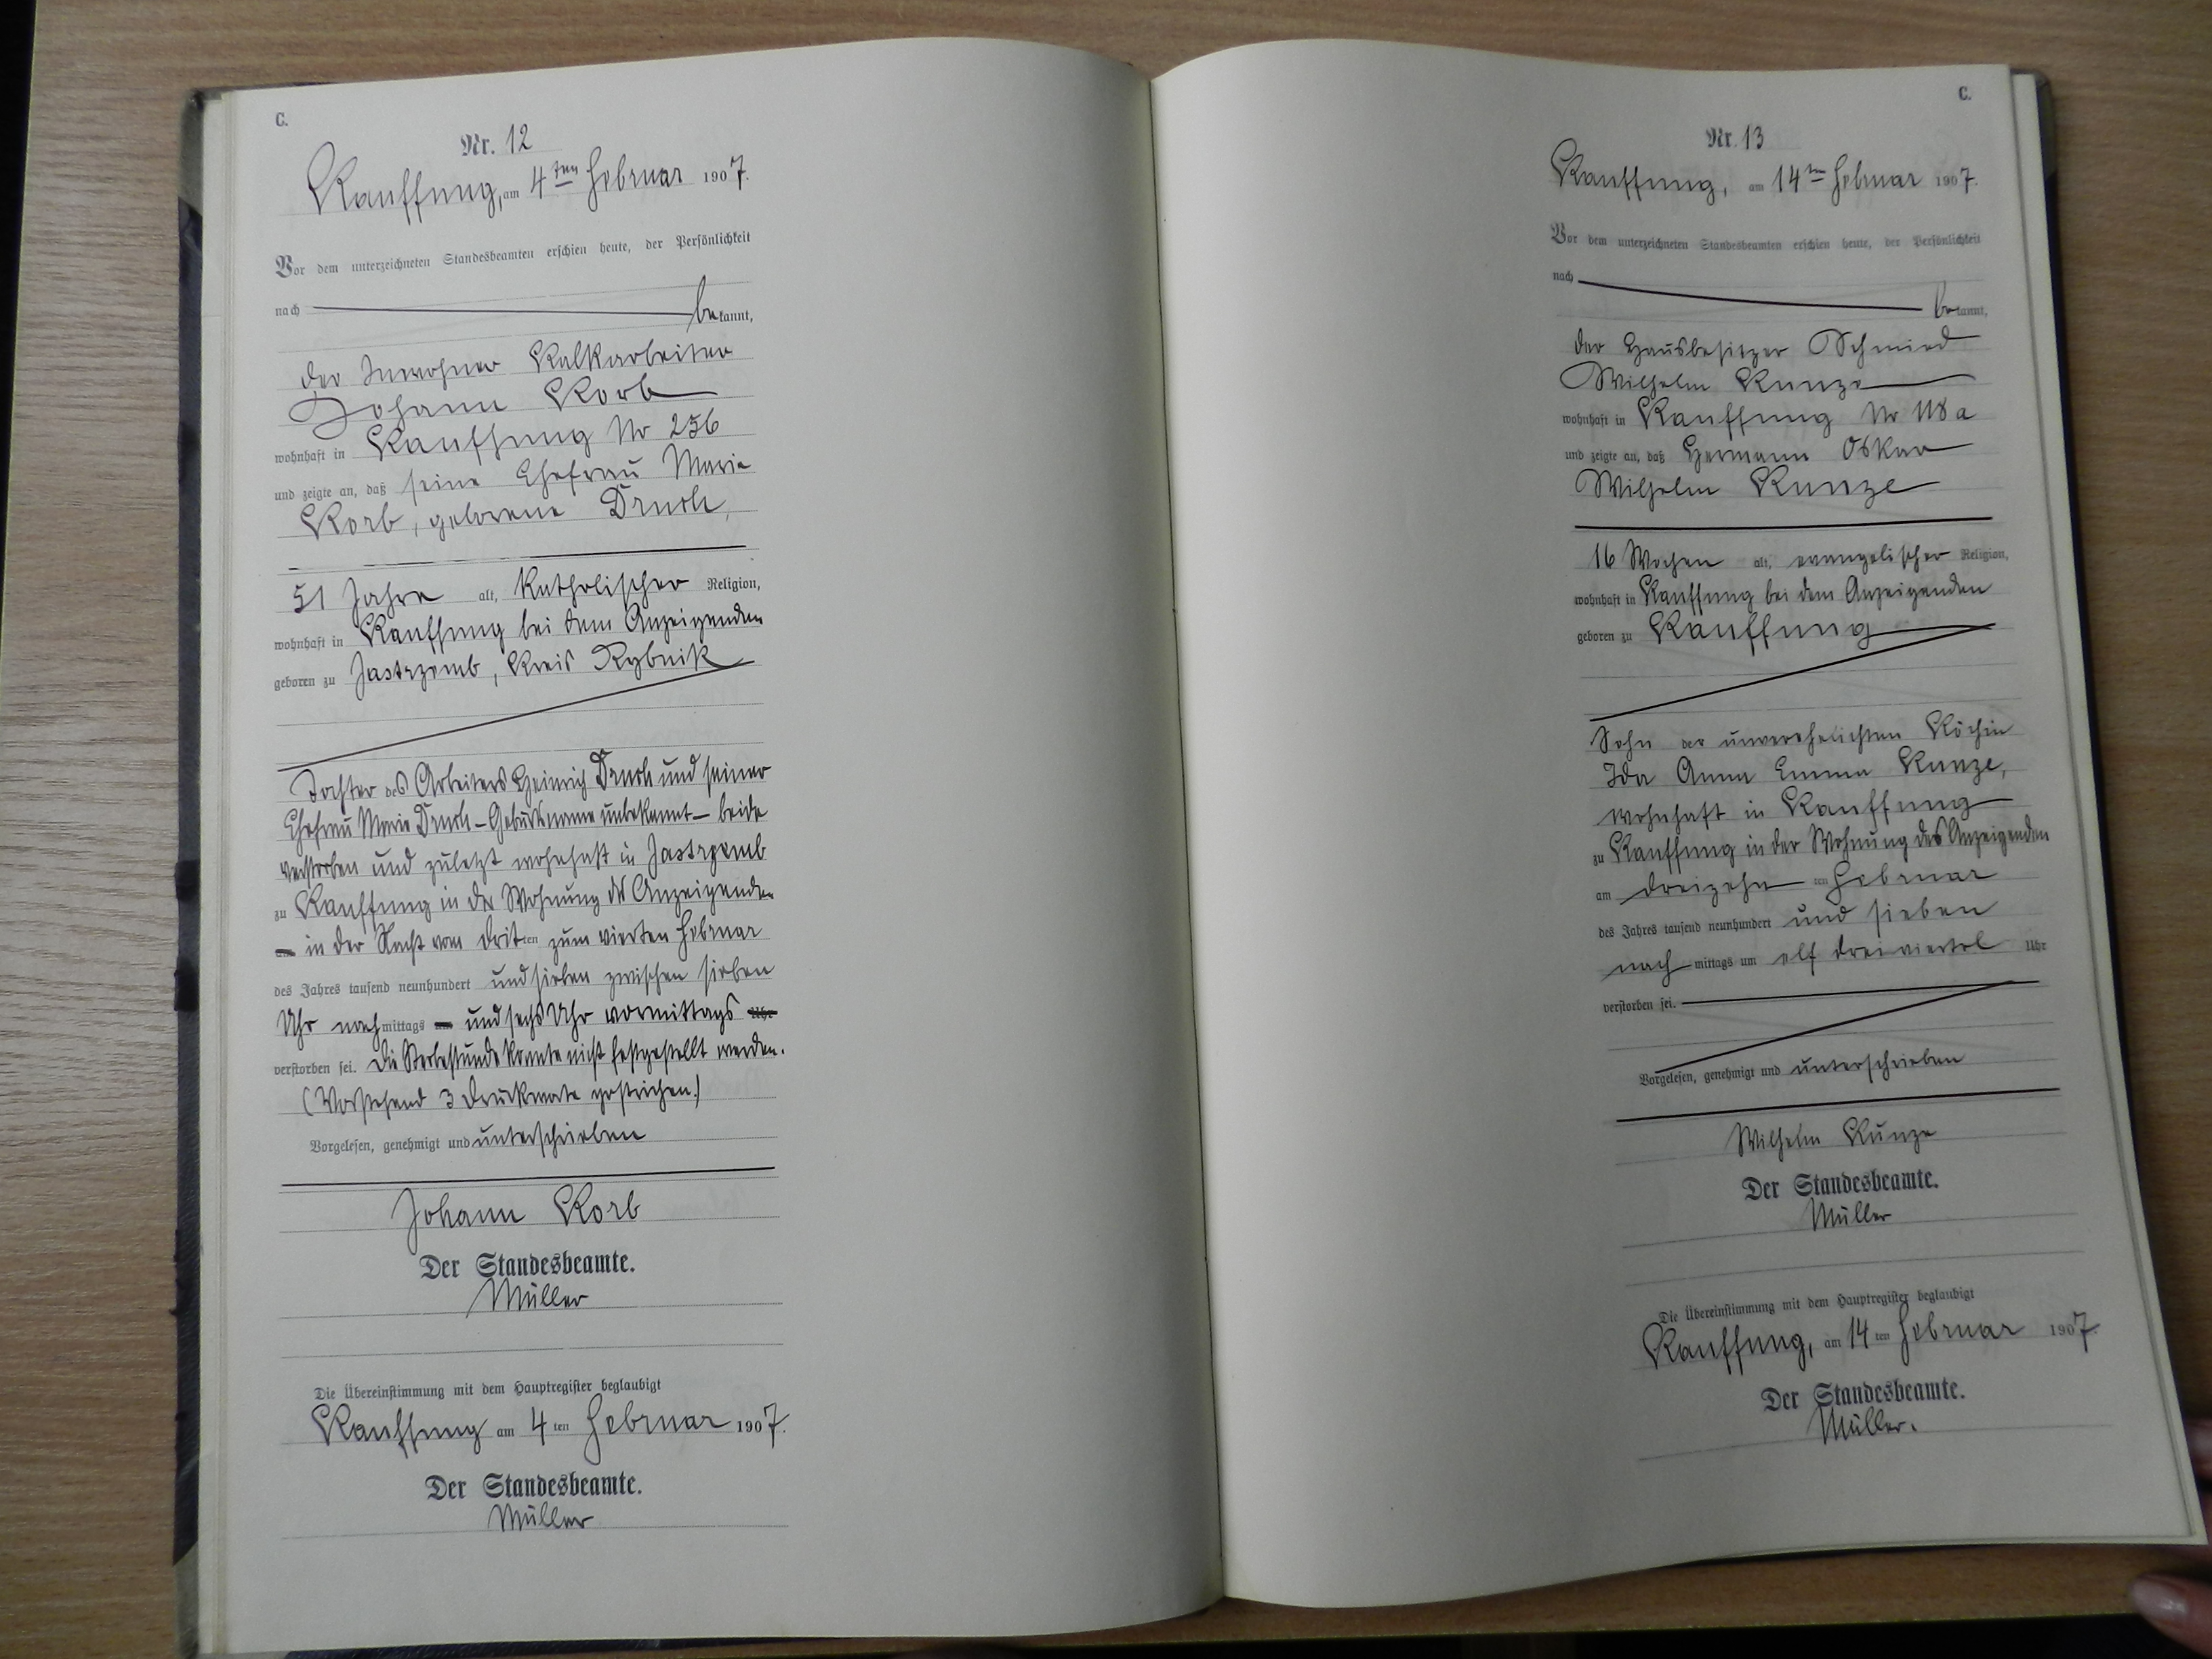 C.
Nr. 12
Kauffung, am 4ten Februar 1907.
Vor dem unterzeichneten Standesbeamten erschien heute, der Persönlichkeit
nach bekannt,
der Inwohner Kalkarbeiter
Johann Korb
wohnhaft in Kauffung Nr 256
und zeigte an, daß seine Ehefrau Marie
Korb, geborene
51 Jahre alt, katholischer Religion,
wohnhaft in Kauffung bei dem Anzeigenden
geboren zu Jastrzemb, Kreis Rybnik
Tochter des Arbeiters Heinrich und seiner
Ehefrau Marie – Geburtsname unbekannt – beide
verstorben und zuletzt wohnhaft in Jastrzemb
zu Kauffung in der Wohnung des Anzeigenden
am in der Nacht vom dritten zum vierten Februar
des Jahres tausend neunhundert und sieben zwischen sieben
Uhr nachmittags um und sechs Uhr vormittags Uhr
verstorben sei. Die Sterbestunde konnte nicht festgestellt werden.
(Vorstehend 3 Druckworte gestrichen.)
Vorgelesen, genehmigt und unterschrieben
Johann Korb
Der Standesbeamte.
Müller
Die Übereinstimmung mit dem Hauptregister beglaubigt
Kauffung am 4 ten Februar 1907.
Der Standesbeamte.
Müller
C.
Nr. 13
Kauffung, am 14ten Februar 1907.
Vor dem unterzeichneten Standesbeamten erschien heute, der Persönlichkeit
nach bekannt,
der Hausbesitzer Schmied
Wilhelm Kunze
wohnhaft in Kauffung Nr 118a
und zeigte an, daß Hermann Oskar
Wilhelm Kunze
16 Wochen alt, evangelischer Religion,
wohnhaft in Kauffung bei dem Anzeigenden
geboren zu Kauffung
Sohn der unverehelichten Köchin
Ida Anna Emma Kunze,
wohnhaft in Kauffung
zu Kauffung in der Wohnung des Anzeigenden
am dreizehn ten Februar
des Jahres tausend neunhundert und sieben
nach mittags um elf dreiviertel Uhr
verstorben sei.
Vorgelesen, genehmigt und unterschrieben
Wilhelm Kunze
Der Standesbeamte.
Müller
Die Übereinstimmung mit dem Hauptregister beglaubigt
Kauffung, am 14 ten Februar 1907.
Der Standesbeamte.
Müller.